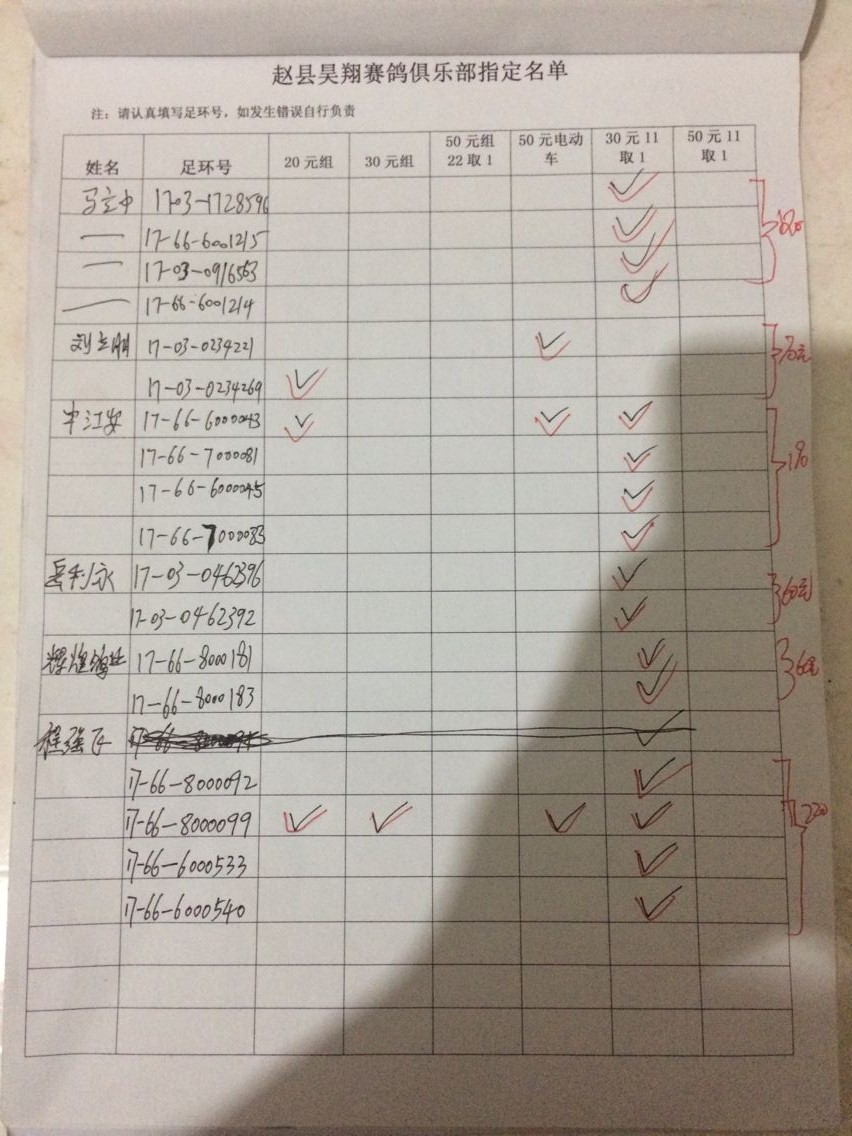 赵县昊翔赛鸽俱乐部指定名单
注：请认真填写足环号，如发生错误自行负责
姓名 足环号 20元组 30元组 50元组22取1 50元电动车 30元11取1 50元11取1
马立中 17-03-1728596 ✓
— 17-66-6001215 ✓
— 17-03-0916563 ✓
— 17-66-6001214 ✓
刘立朋 17-03-0234221 ✓
17-03-0234269 ✓ 70元
牛江安 17-66-6000043 ✓ ✓ ✓
17-66-7000081 ✓
17-66-6000045 ✓ 190
17-66-7000083 ✓
岳利永 17-03-0462396 ✓
17-03-0462392 ✓ 60元
17-66-8000181 ✓
17-66-8000183 ✓
程强飞 ✓
17-66-8000092 ✓
17-66-8000099 ✓ ✓ ✓ ✓ 220
17-66-6000533 ✓
17-66-6000540 ✓